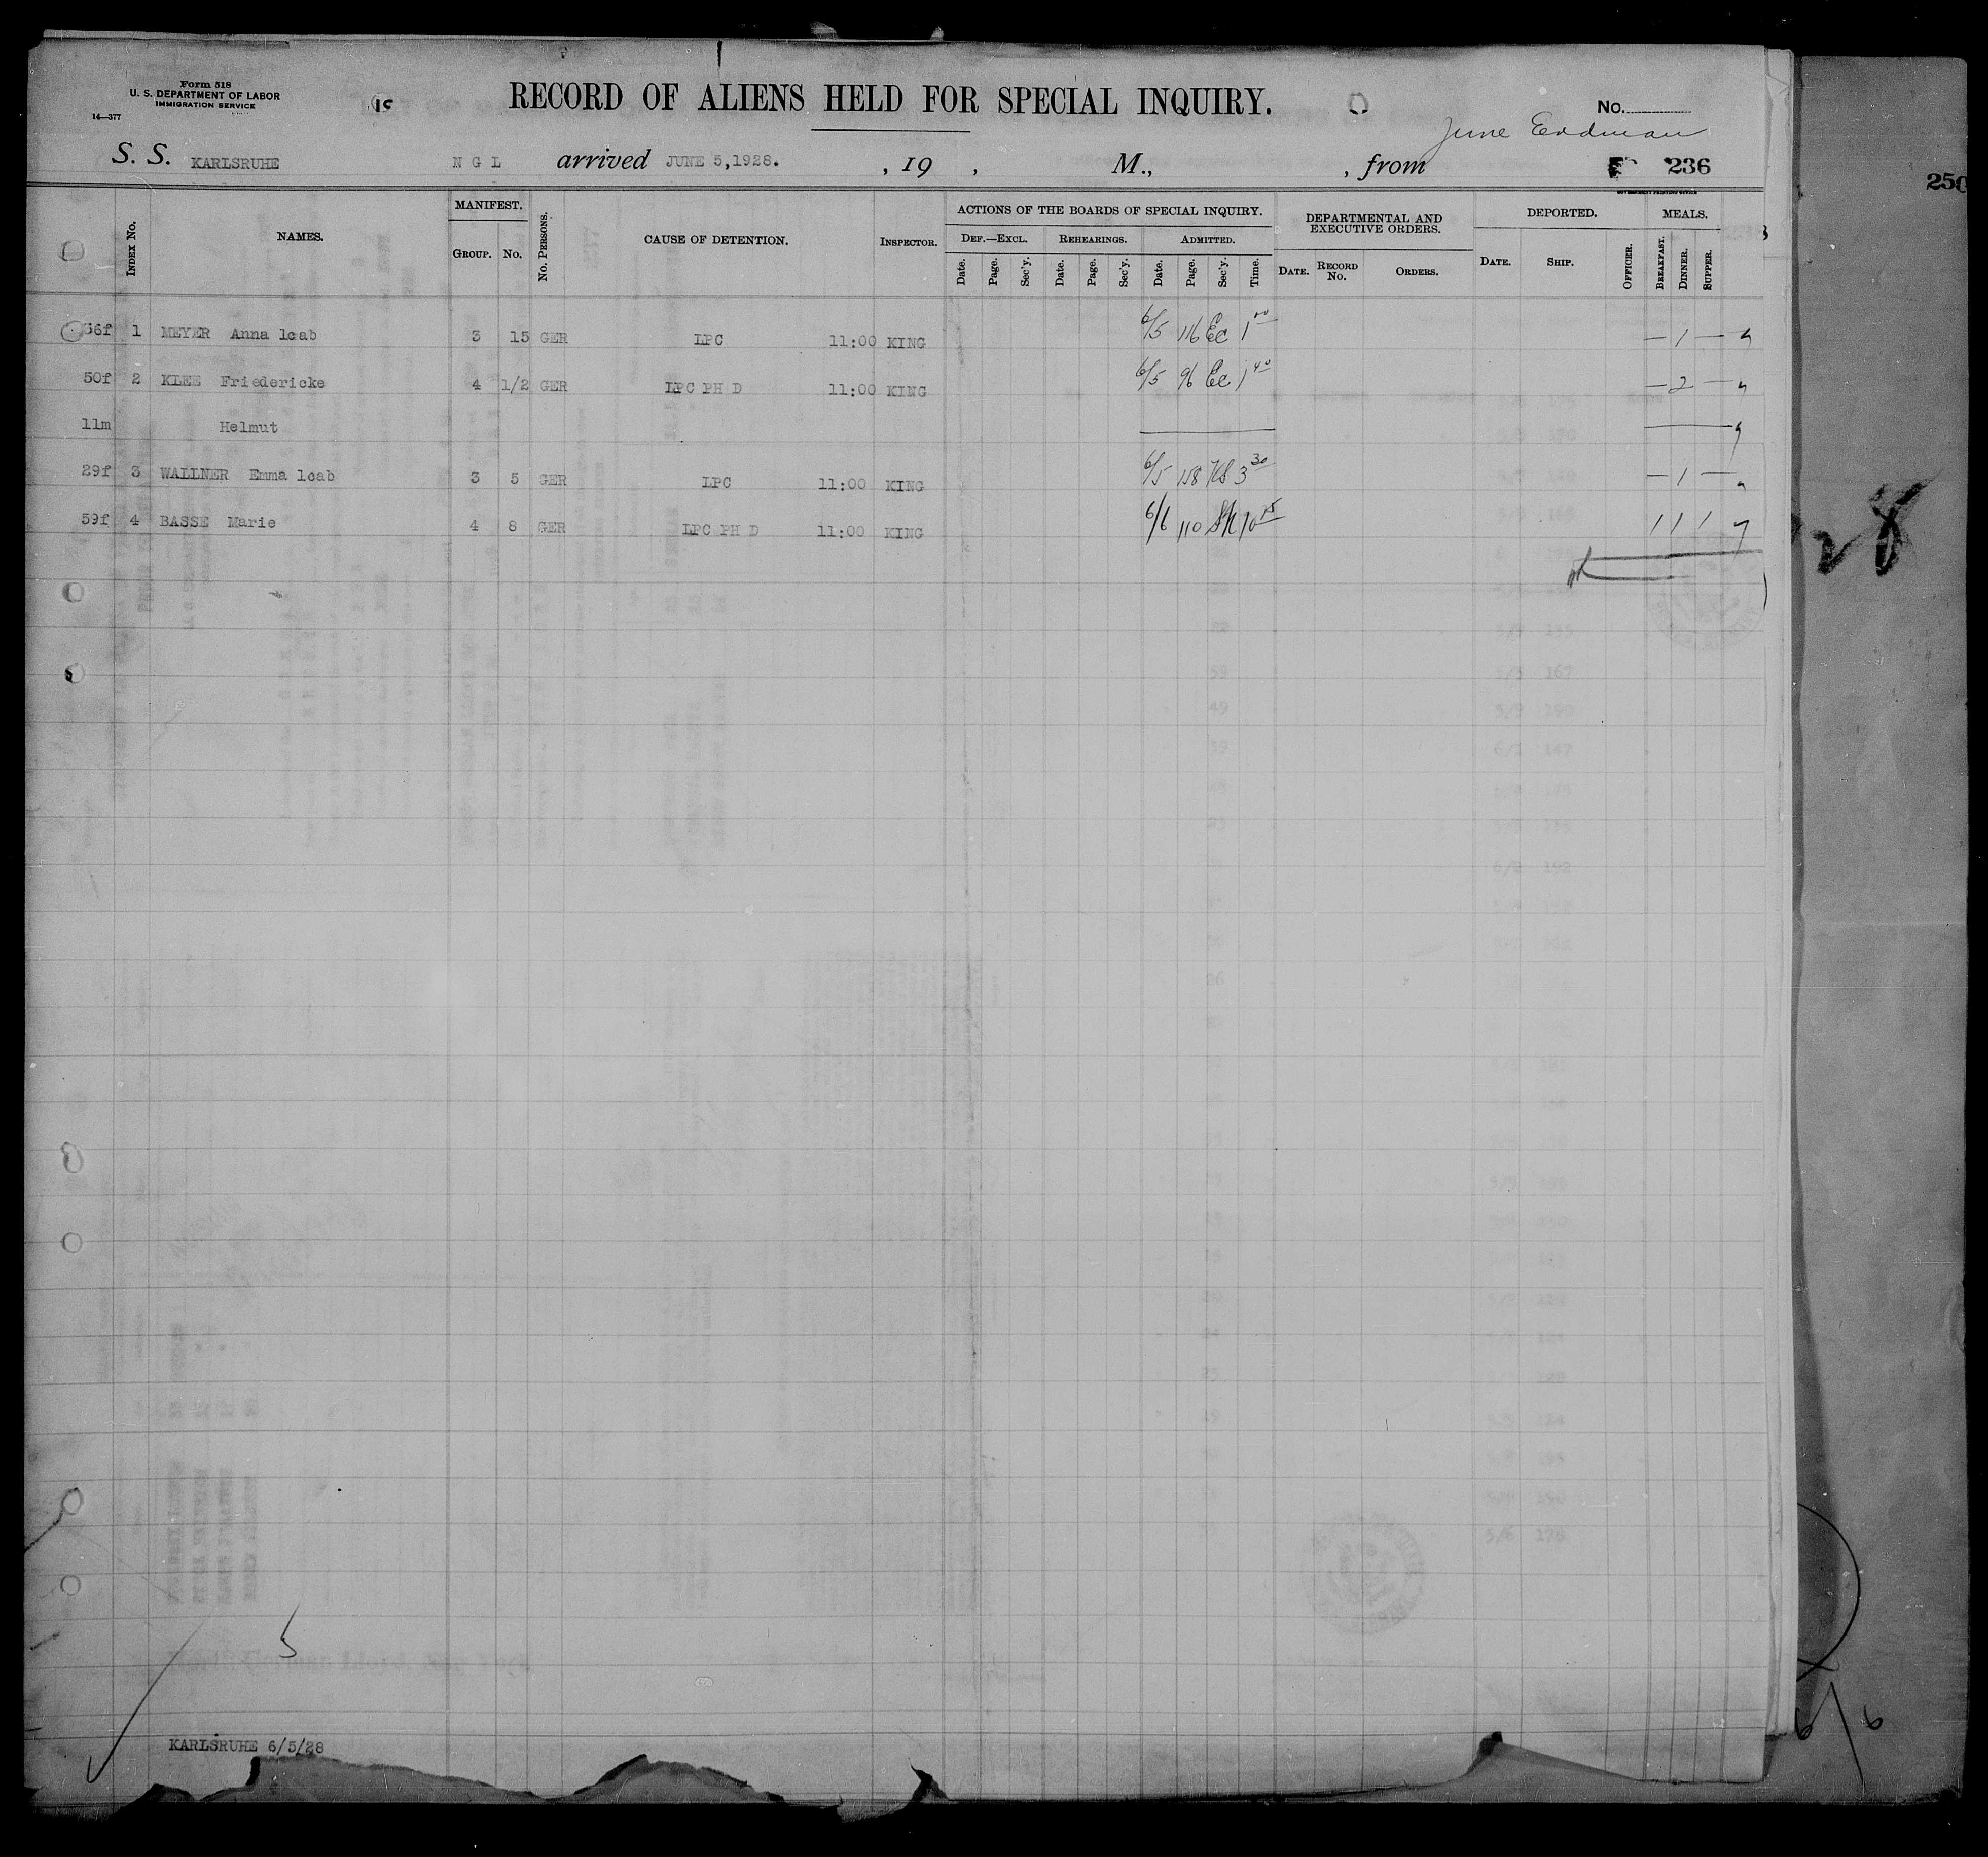 Form 518
U. S. DEPARTMENT OF LABOR
IMMIGRATION SERVICE
14—377
RECORD OF ALIENS HELD FOR SPECIAL INQUIRY.
No.
June Erdman
S. S. KARLSRUHE N G L arrived JUNE 5,1928. , 19 , M., , from 236
GOVERNMENT PRINTING OFFICE
250
INDEX No. NAMES. MANIFEST. GROUP. No. No. PERSONS. CAUSE OF DETENTION. INSPECTOR. ACTIONS OF THE BOARDS OF SPECIAL INQUIRY. DEPARTMENTAL AND EXECUTIVE ORDERS. DEPORTED. MEALS.
DEF.—EXCL. REHEARINGS. ADMITTED.
Date. Page. Sec'y. Date. Page. Sec'y. Date. Page. Sec'y. Time. DATE. RECORD No. ORDERS. DATE. SHIP. OFFICER. BREAKFAST. DINNER. SUPPER.
36f 1 MEYER Anna lcab 3 15 GER LPC 11:00 KING 6/5 116 Ec 1 00 — 1 —
50f 2 KLEE Friedericke 4 1/2 GER LPC PH D 11:00 KING 6/5 96 Ec 1 40 — 2 —
11m Helmut
29f 3 WALLNER Emma lcab 3 5 GER LPC 11:00 KING 6/5 158 KS 3 30 — 1 —
59f 4 BASSE Marie 4 8 GER LPC PH D 11:00 KING 6/6 110 SK 10 15 1 1 1
28
5
KARLSRUHE 6/5/28
6/6